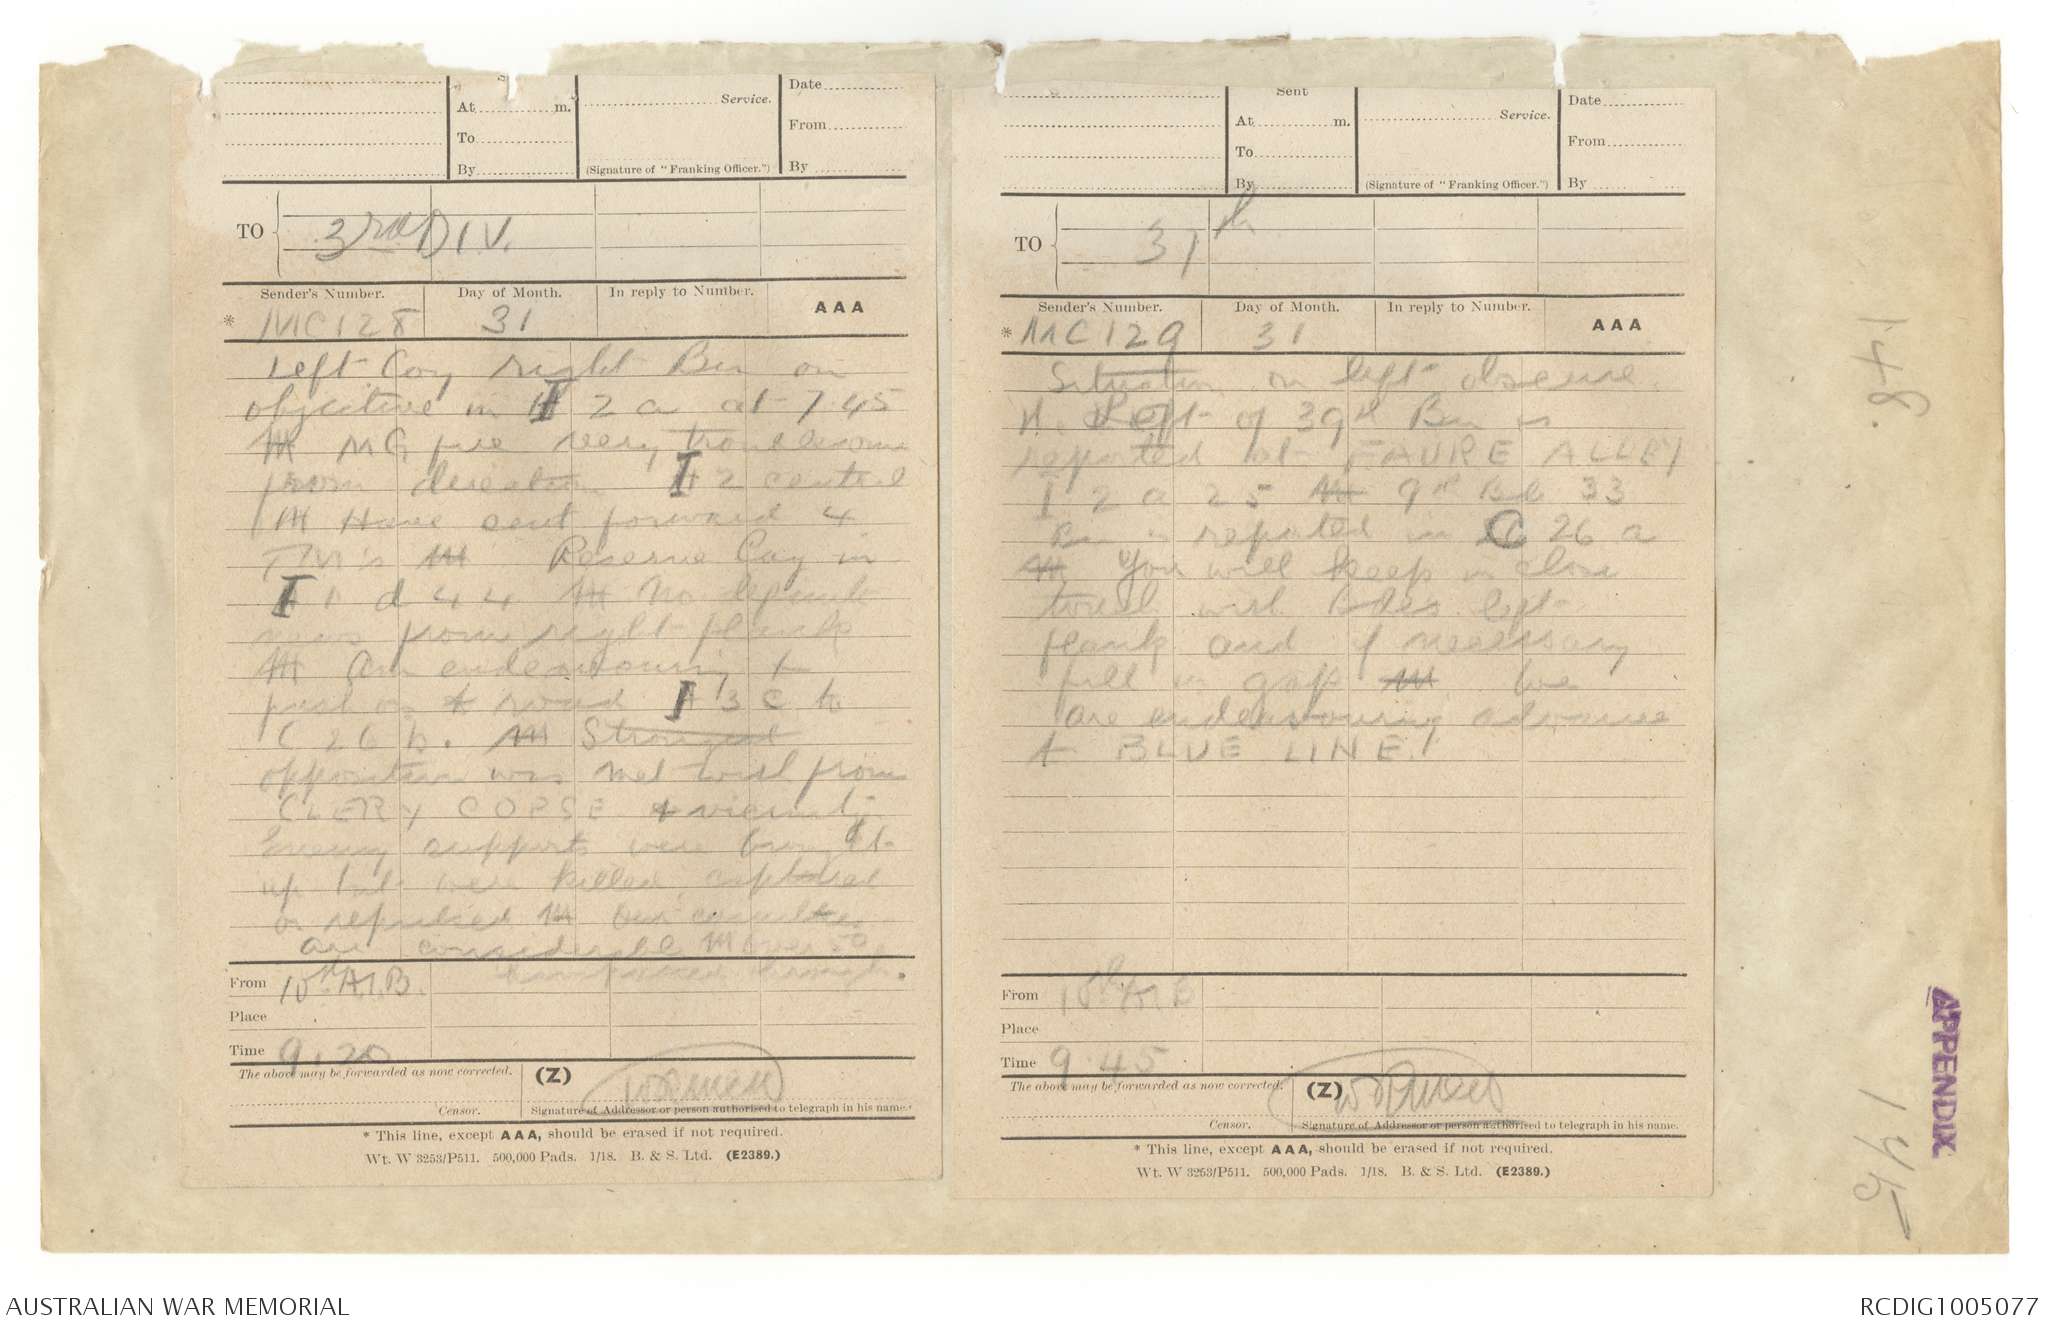 At m.
To
By
Service.
(Signature of "Franking Officer.")
Date
From
By
TO 3rd DIV.
Sender's Number. Day of Month. In reply to Number. AAA
* MC128 31
Left Coy right Bn on
objective in I 2 a at 7.45
AAA MG fire very troublesome
from direction I 2 central
AAA Have sent forward 4
TM's AAA Reserve Coy in
I 1 d 44 AAA No definite
news from right flank
AAA Am endeavouring to
push on to road I 3 c to
C 26 b. AAA Strongest
opposition was met with from
CLERY COPSE & vicinity
Enemy supports were brought
up but were killed, captured
or repulsed AAA Our casualties
are considerable AAA over 50
have passed through.
From 10th A.I.B.
Place
Time 9.20
The above may be forwarded as now corrected. (Z)
Censor. Signature of Addressor or person authorised to telegraph in his name.
* This line, except AAA, should be erased if not required.
Wt. W 3253/P511. 500,000 Pads. 1/18. B. & S. Ltd. (E2389.)
Sent
At m.
To
By
Service.
(Signature of "Franking Officer.")
Date
From
By
TO 37th
Sender's Number. Day of Month. In reply to Number. AAA
* MC129 31
Situation on left obscure.
Left of 39th Bn is
reported at FAVRE ALLEY
I 2 a 25 AAA 9th Bde 33
Bn is reported in C 26 a
AAA You will keep in close
touch with Bdes left
flank and if necessary
fill in gaps AAA We
are endeavouring advance
to BLUE LINE.
From 10th A.I.B
Place
Time 9.45
The above may be forwarded as now corrected. (Z)
Censor. Signature of Addressor or person authorised to telegraph in his name.
* This line, except AAA, should be erased if not required.
Wt. W 3253/P511. 500,000 Pads. 1/18. B. & S. Ltd. (E2389.)
148.
APPENDIX
145
AUSTRALIAN WAR MEMORIAL
RCDIG1005077